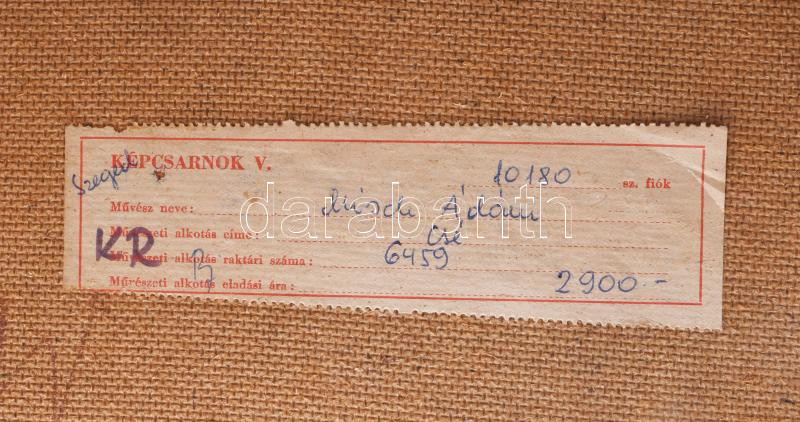 KÉPCSARNOK V.
Szeged
10180 sz. fiók
Művész neve: Misch Ádám
Művészeti alkotás címe: Csé
KR
Művészeti alkotás raktári száma: 6459
Művészeti alkotás eladási ára: 2900-
darabanth